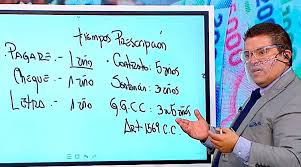 tiempos Prescripción
PAGARÉ.- 1 año
CHEQUE.- 1 año
LETRA.- 1 año
Contrato: 5 años
3 años
G.G.C.C: 3 a 5 años
Art 1569 C.C.